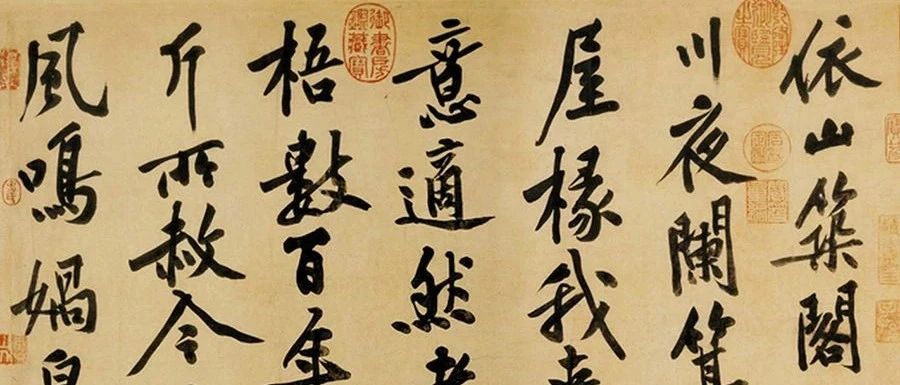 依山築閣
川夜闌箕
屋椽我
意適然
梧數百年
斤所赦今
風鳴媧皇
御書房鑑藏寶